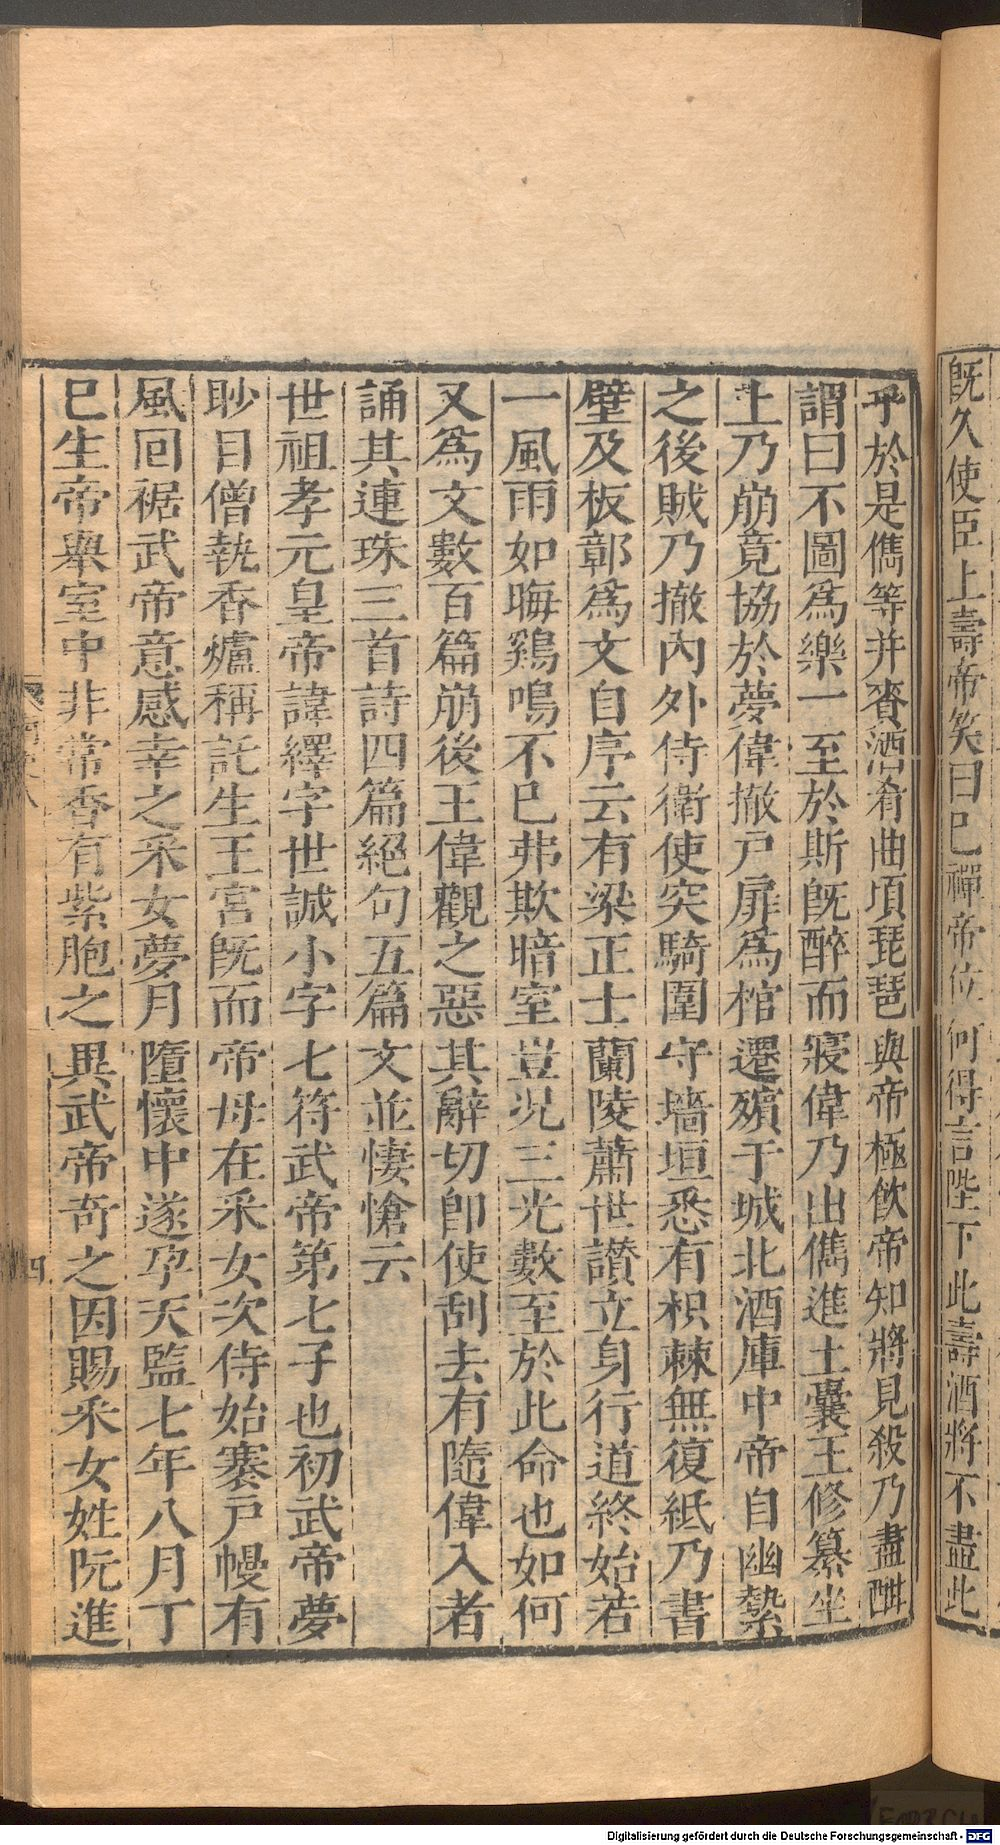 旣久使臣上壽帝笑曰已禪帝位何得言陛下此壽酒將不盡此
乎於是儁等并賫酒肴曲項琵琶與帝極飮帝知將見殺乃盡酣
謂曰不圖爲樂一至於斯旣醉而寢偉乃出儁進土囊王修纂坐
上乃崩竟協於夢偉撤戸扉爲棺遷殯于城北酒庫中帝自幽縶
之後賊乃撤內外侍衛使突騎圍守墻垣悉有枳棘無復紙乃書
壁及板鄣爲文自序云有梁正士蘭陵蕭世讃立身行道終始若
一風雨如晦鷄鳴不已弗欺暗室豈况三光數至於此命也如何
又爲文數百篇崩後王偉觀之惡其辭切卽使刮去有隨偉入者
誦其連珠三首詩四篇絕句五篇文並悽愴云
世祖孝元皇帝諱繹字世誠小字七符武帝第七子也初武帝夢
眇目僧執香爐稱託生王宮旣而帝母在采女次侍始褰戸幔有
風回裾武帝意感幸之采女夢月墮懷中遂孕天監七年八月丁
巳生帝舉室中非常香有紫胞之異武帝奇之因賜采女姓阮進
四
Digitalisierung gefördert durch die Deutsche Forschungsgemeinschaft - DFG